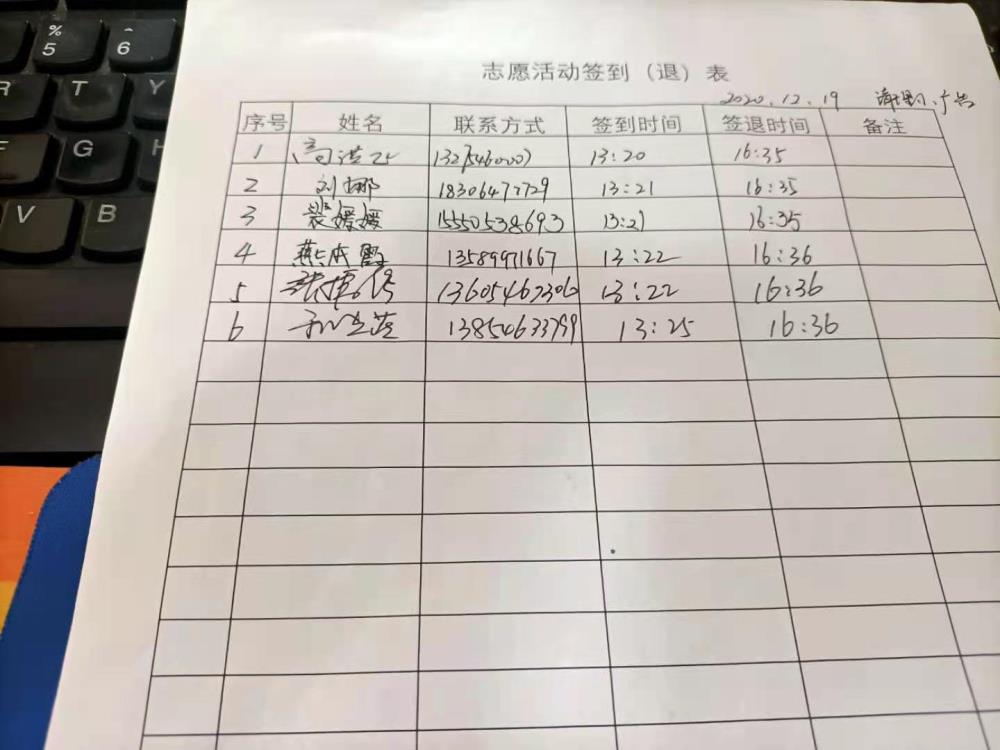 % 5 ^ 6
R T Y
F G H
V B
志愿活动签到（退）表
2020.12.19
序号 姓名 联系方式 签到时间 签退时间 备注
1 13:20 16:35
2 刘娜 13:21 16:35
3 裴媛媛 15550538693 13:21 16:35
4 燕本霞 13589971667 13:22 16:36
5 13605467306 13:22 16:36
6 13854633799 13:25 16:36